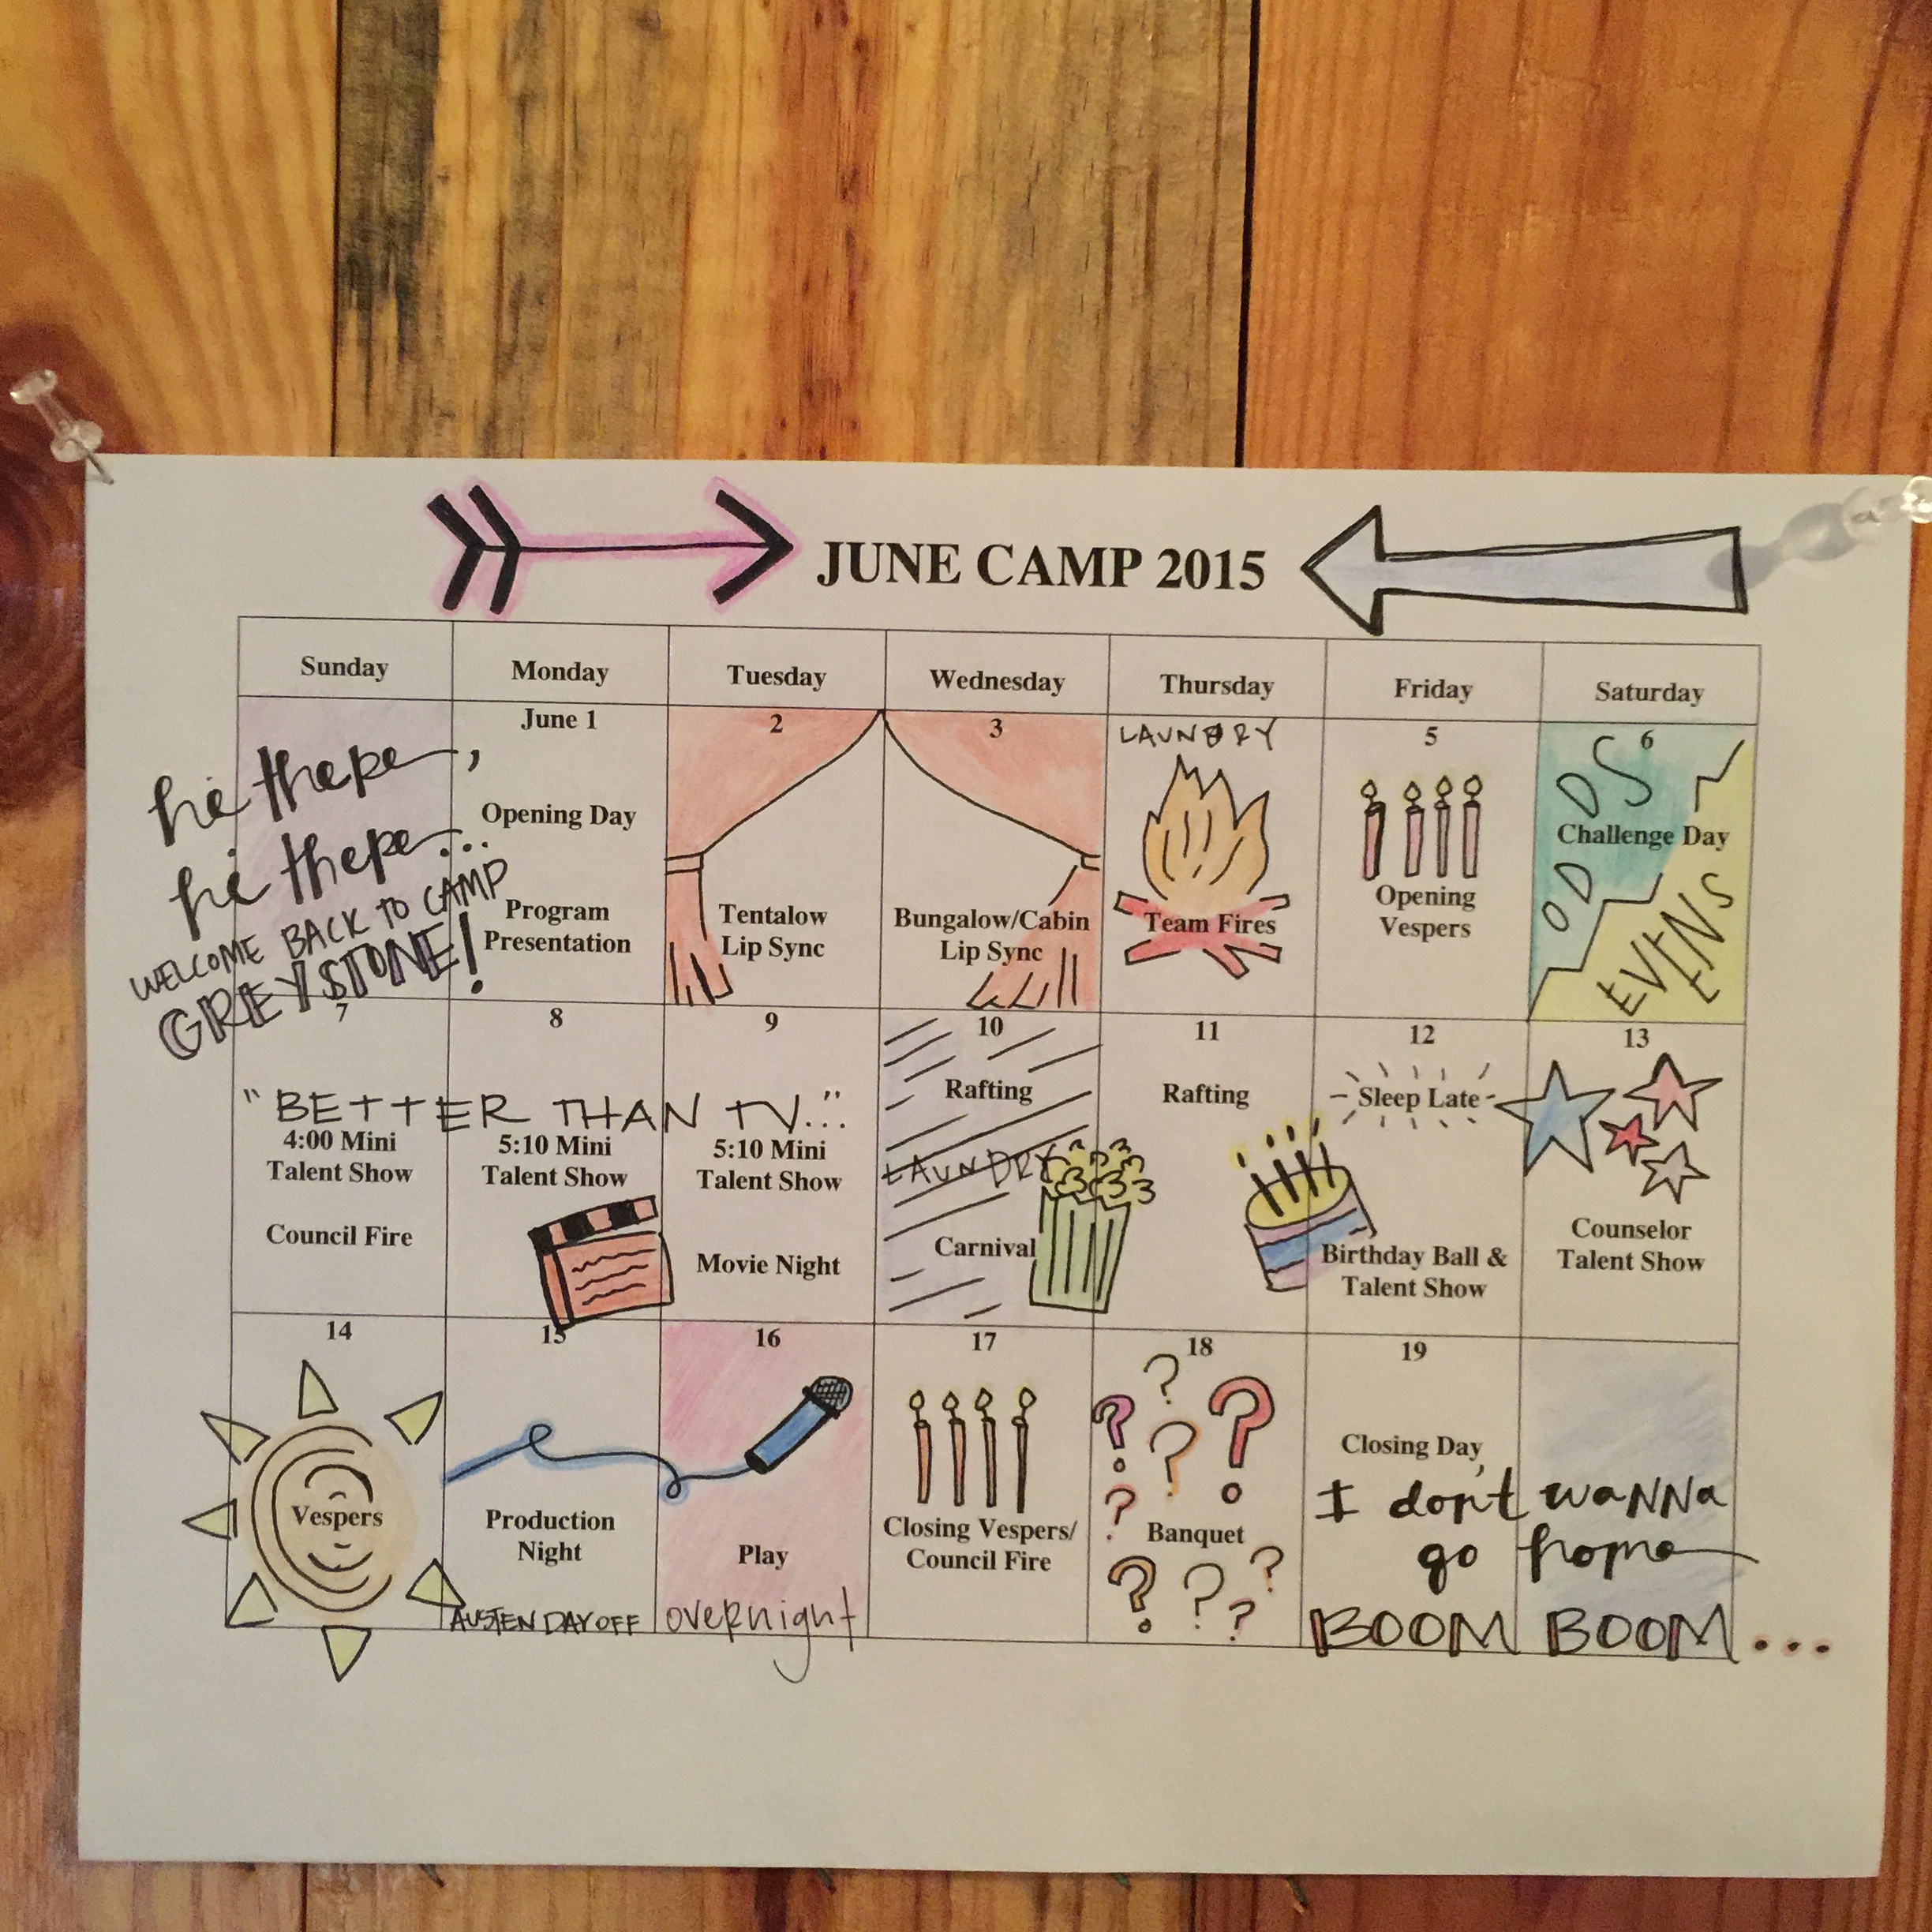 JUNE CAMP 2015
Sunday Monday Tuesday Wednesday Thursday Friday Saturday
hi there,
hi there...
WELCOME BACK TO CAMP
GREYSTONE!
June 1
Opening Day
Program
Presentation
2
Tentalow
Lip Sync
3
Bungalow/Cabin
Lip Sync
LAUNDRY
Team Fires
5
Opening
Vespers
6
ODDS
Challenge Day
EVENS
"BETTER THAN TV..."
7
4:00 Mini
Talent Show
Council Fire
8
5:10 Mini
Talent Show
9
5:10 Mini
Talent Show
Movie Night
10
Rafting
LAUNDRY
Carnival
11
Rafting
12
Sleep Late
Birthday Ball &
Talent Show
13
Counselor
Talent Show
14
Vespers
15
Production
Night
AUSTEN DAY OFF
16
Play
overnight
17
Closing Vespers/
Council Fire
18
? ? ? ? ?
Banquet
? ? ? ?
19
Closing Day
I don't waNNa
go home
BOOM BOOM...